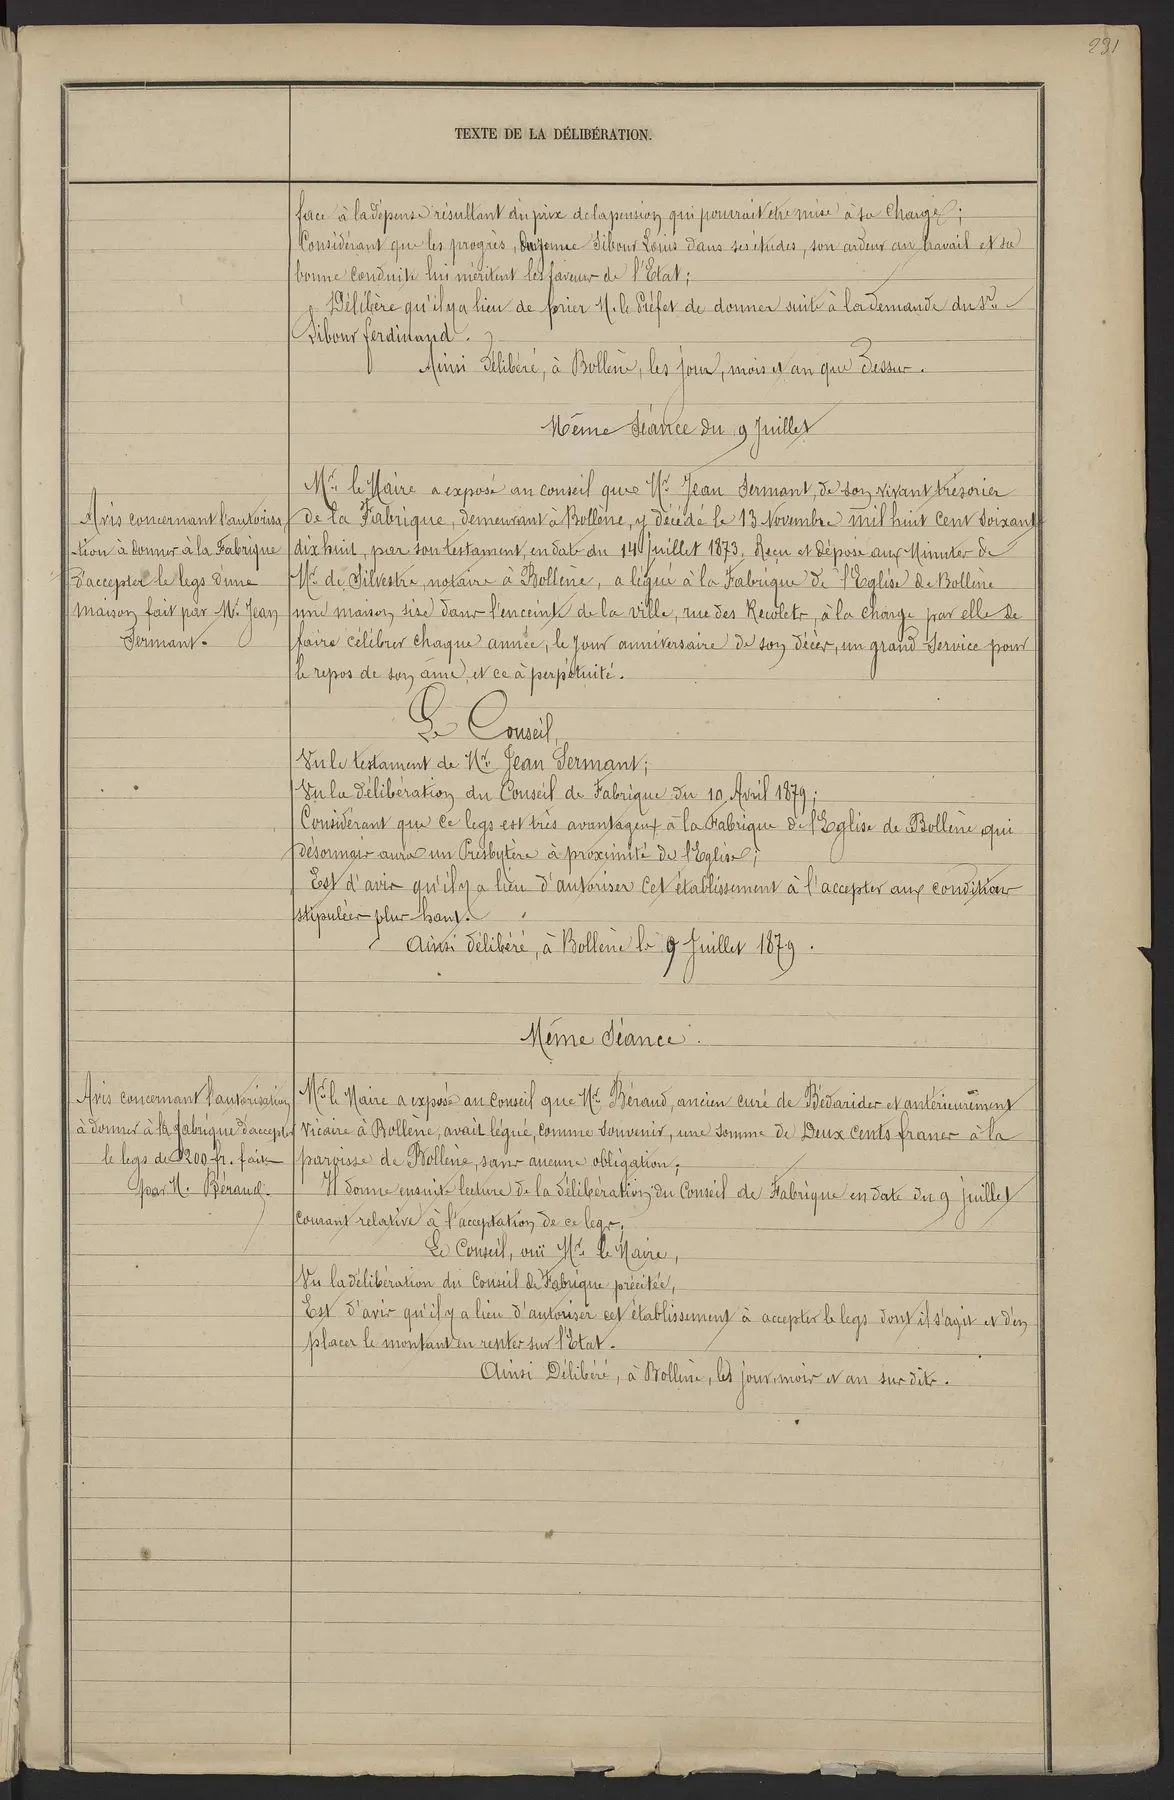 231
TEXTE DE LA DÉLIBÉRATION.
face à la dépense résultant du prix de la pension qui pourrait être mise à sa charge ;
Considérant que les progrès, du jeune Sibour Louis dans ses études, son ardeur au travail et sa
bonne conduite lui méritent les faveurs de l'Etat ;
Délibère qu'il y a lieu de prier M. le Préfet de donner suite à la demande du Sr.
Sibour Ferdinand.
Ainsi délibéré, à Bollène, les jour, mois et an que dessus.
Même Séance du 9 Juillet
Avis concernant l'autorisa
-tion à donner à la Fabrique
d'accepter le legs d'une
maison fait par Mr. Jean
Sermant.
Mr. le Maire a exposé au conseil que Mr. Jean Sermant, de son vivant trésorier
de la Fabrique, demeurant à Bollène, y décédé le 13 Novembre mil huit cent soixante
dix huit, par son testament, en date du 14 juillet 1873, Reçu et déposé aux Minutes de
Me. de Silvestre, notaire à Bollène, a légué à la Fabrique de l'Eglise de Bollène
une maison sise dans l'enceinte de la ville, rue des Recolets, à la charge par elle de
faire célébrer chaque année, le jour anniversaire de son décès, un grand Service pour
le repos de son âme, et ce à perpétuité.
Le Conseil,
Vu le testament de Mr. Jean Sermant ;
Vu la délibération du Conseil de Fabrique du 10 Avril 1879 ;
Considérant que ce legs est très avantageux à la Fabrique de l'Eglise de Bollène qui
désormais aura un Presbytère à proximité de l'Eglise ;
Est d'avis qu'il y a lieu d'autoriser cet établissement à l'accepter aux conditions
stipulées plus haut.
Ainsi délibéré, à Bollène le 9 Juillet 1879.
Même Séance.
Avis concernant l'autorisation
à donner à la fabrique d'accepter
le legs de 200 fr. fait
par M. Béraud.
Mr. le Maire a exposé au conseil que Mr. Béraud, ancien curé de Bédarides et antérieurement
Vicaire à Bollène, avait légué, comme souvenir, une somme de Deux cents francs à la
paroisse de Bollène, sans aucune obligation ;
Il donne ensuite lecture de la délibération du Conseil de Fabrique en date du 9 juillet
courant relative à l'acceptation de ce legs.
Le Conseil, ouï Mr. le Maire,
Vu la délibération du Conseil de Fabrique précitée,
Est d'avis qu'il y a lieu d'autoriser cet établissement à accepter le legs dont il s'agit et d'en
placer le montant en rentes sur l'Etat.
Ainsi Délibéré, à Bollène, les jour, mois et an sur dits.